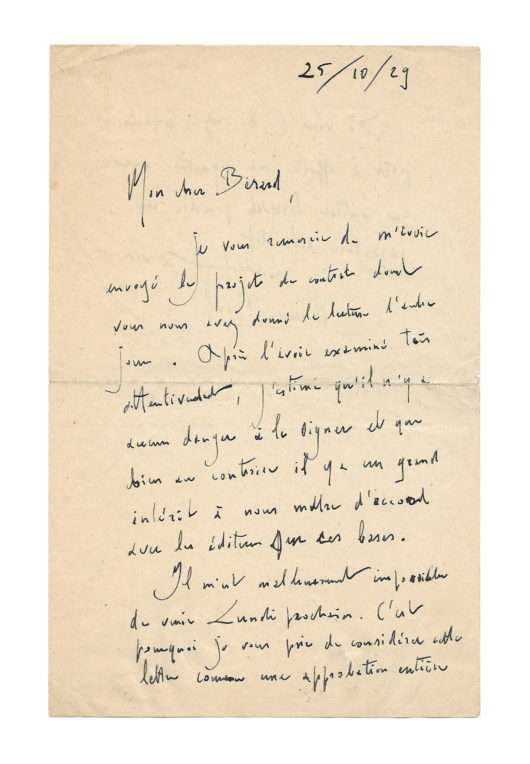 25/10/29
Mon cher Bérard,
Je vous remercie de m'avoir
envoyé le projet de contrat dont
vous nous avez donné la lecture l'autre
jour. Après l'avoir examiné très
attentivement, j'estime qu'il n'y a
aucun danger à le signer et que
bien au contraire il y a un grand
intérêt à nous mettre d'accord
avec les éditeurs sur ces bases.
Il m'est malheureusement impossible
de venir Lundi prochain. C'est
pourquoi je vous prie de considérer cette
lettre comme une approbation entière